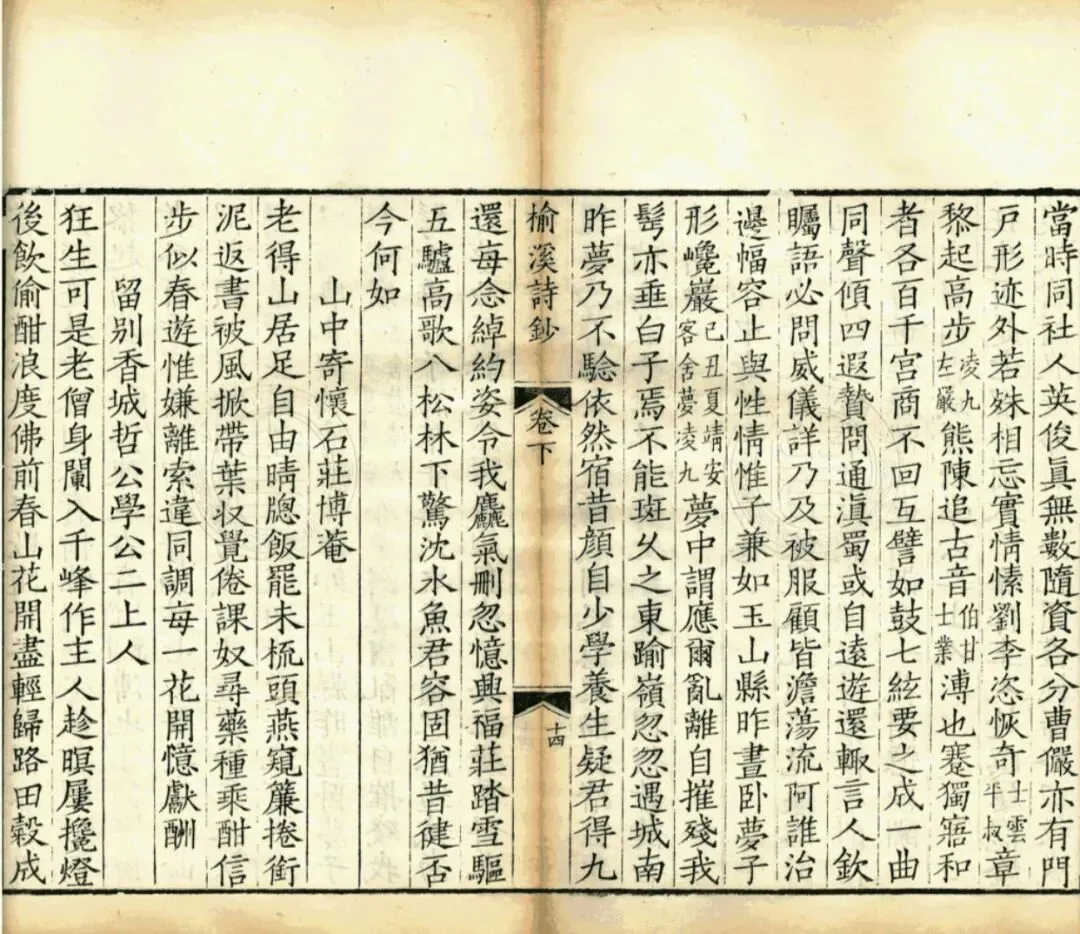 當時同社人英俊眞無數隨資各分曹儼亦有門
戸形迹外若殊相忘實情愫劉李恣恢奇士雲平叔章
黎起高步凌九左嚴熊陳追古音伯甘士業溥也蹇獨寤和
者各百千宮商不回互譬如鼓七絃要之成一曲
同聲傾四遐贊問通滇蜀或自遠遊還輙言人欽
矚語必問威儀詳乃及被服顧皆澹蕩流阿誰治
邊幅容止與性情惟子兼如玉山縣昨晝卧夢子
形巉巖己丑夏靖安客舍夢凌九夢中謂應爾亂離自摧殘我
髩亦垂白子焉不能斑乆之東踰嶺忽忽遇城南
昨夢乃不驗依然宿昔顔自少學養生疑君得九
榆溪詩鈔 卷下 十四
還每念綽約姿令我麤氣刪忽憶興福莊踏雪驅
五驢高歌入松林下驚沈水魚君容固猶昔健否
今何如
山中寄懷石莊博菴
老得山居足自由晴牕飯罷未梳頭燕窺簾捲銜
泥返書被風掀帶葉収覺倦課奴尋藥種乘酣信
步似春遊惟嫌離索違同調每一花開憶獻酬
留别香城哲公學公二上人
狂生可是老僧身闌入千峰作主人趁暝屢攙燈
後飲偷酣浪度佛前春山花開盡輕歸路田穀成